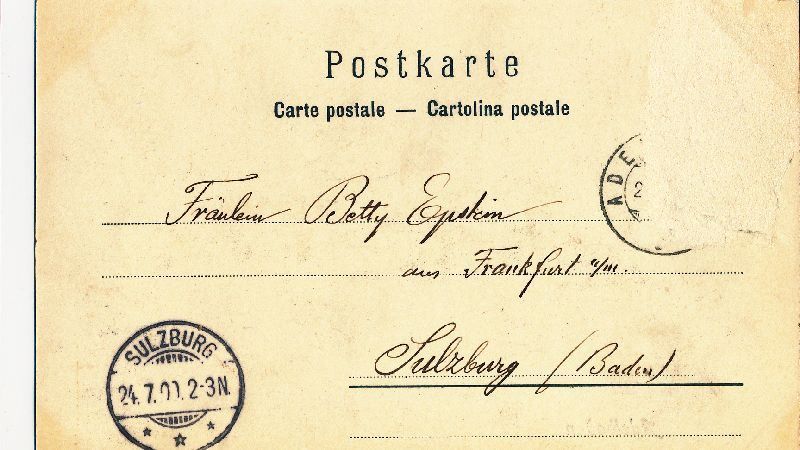 Postkarte
Carte postale — Cartolina postale
ADE
2
Fräulein Betty Epstein
aus Frankfurt a/m.
Sulzburg (Baden)
SULZBURG
24.7.00.2-3N.